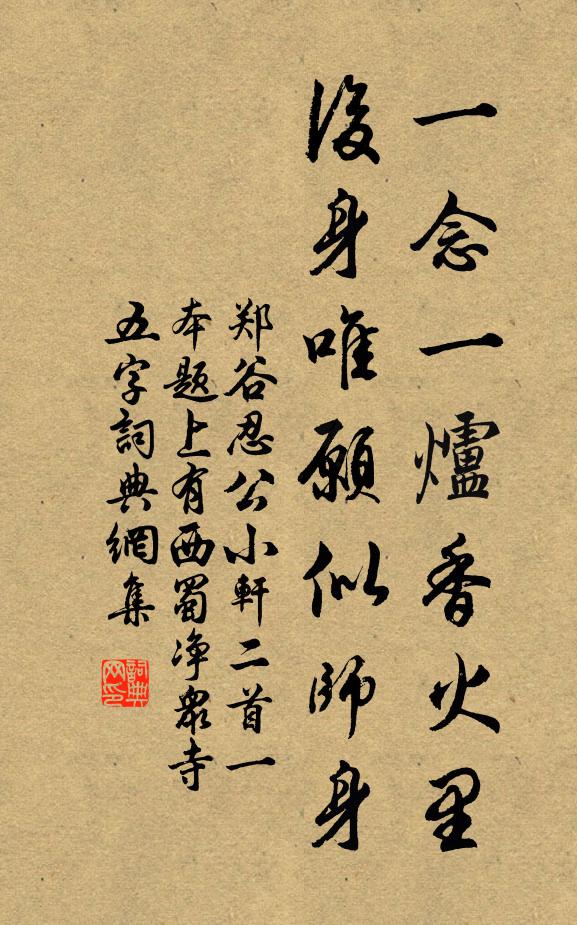 一念一爐香火里
後身唯願似師身
郑谷忍公小軒二首一
本題上有西蜀净眾寺
五字詞典網集
詞典网印